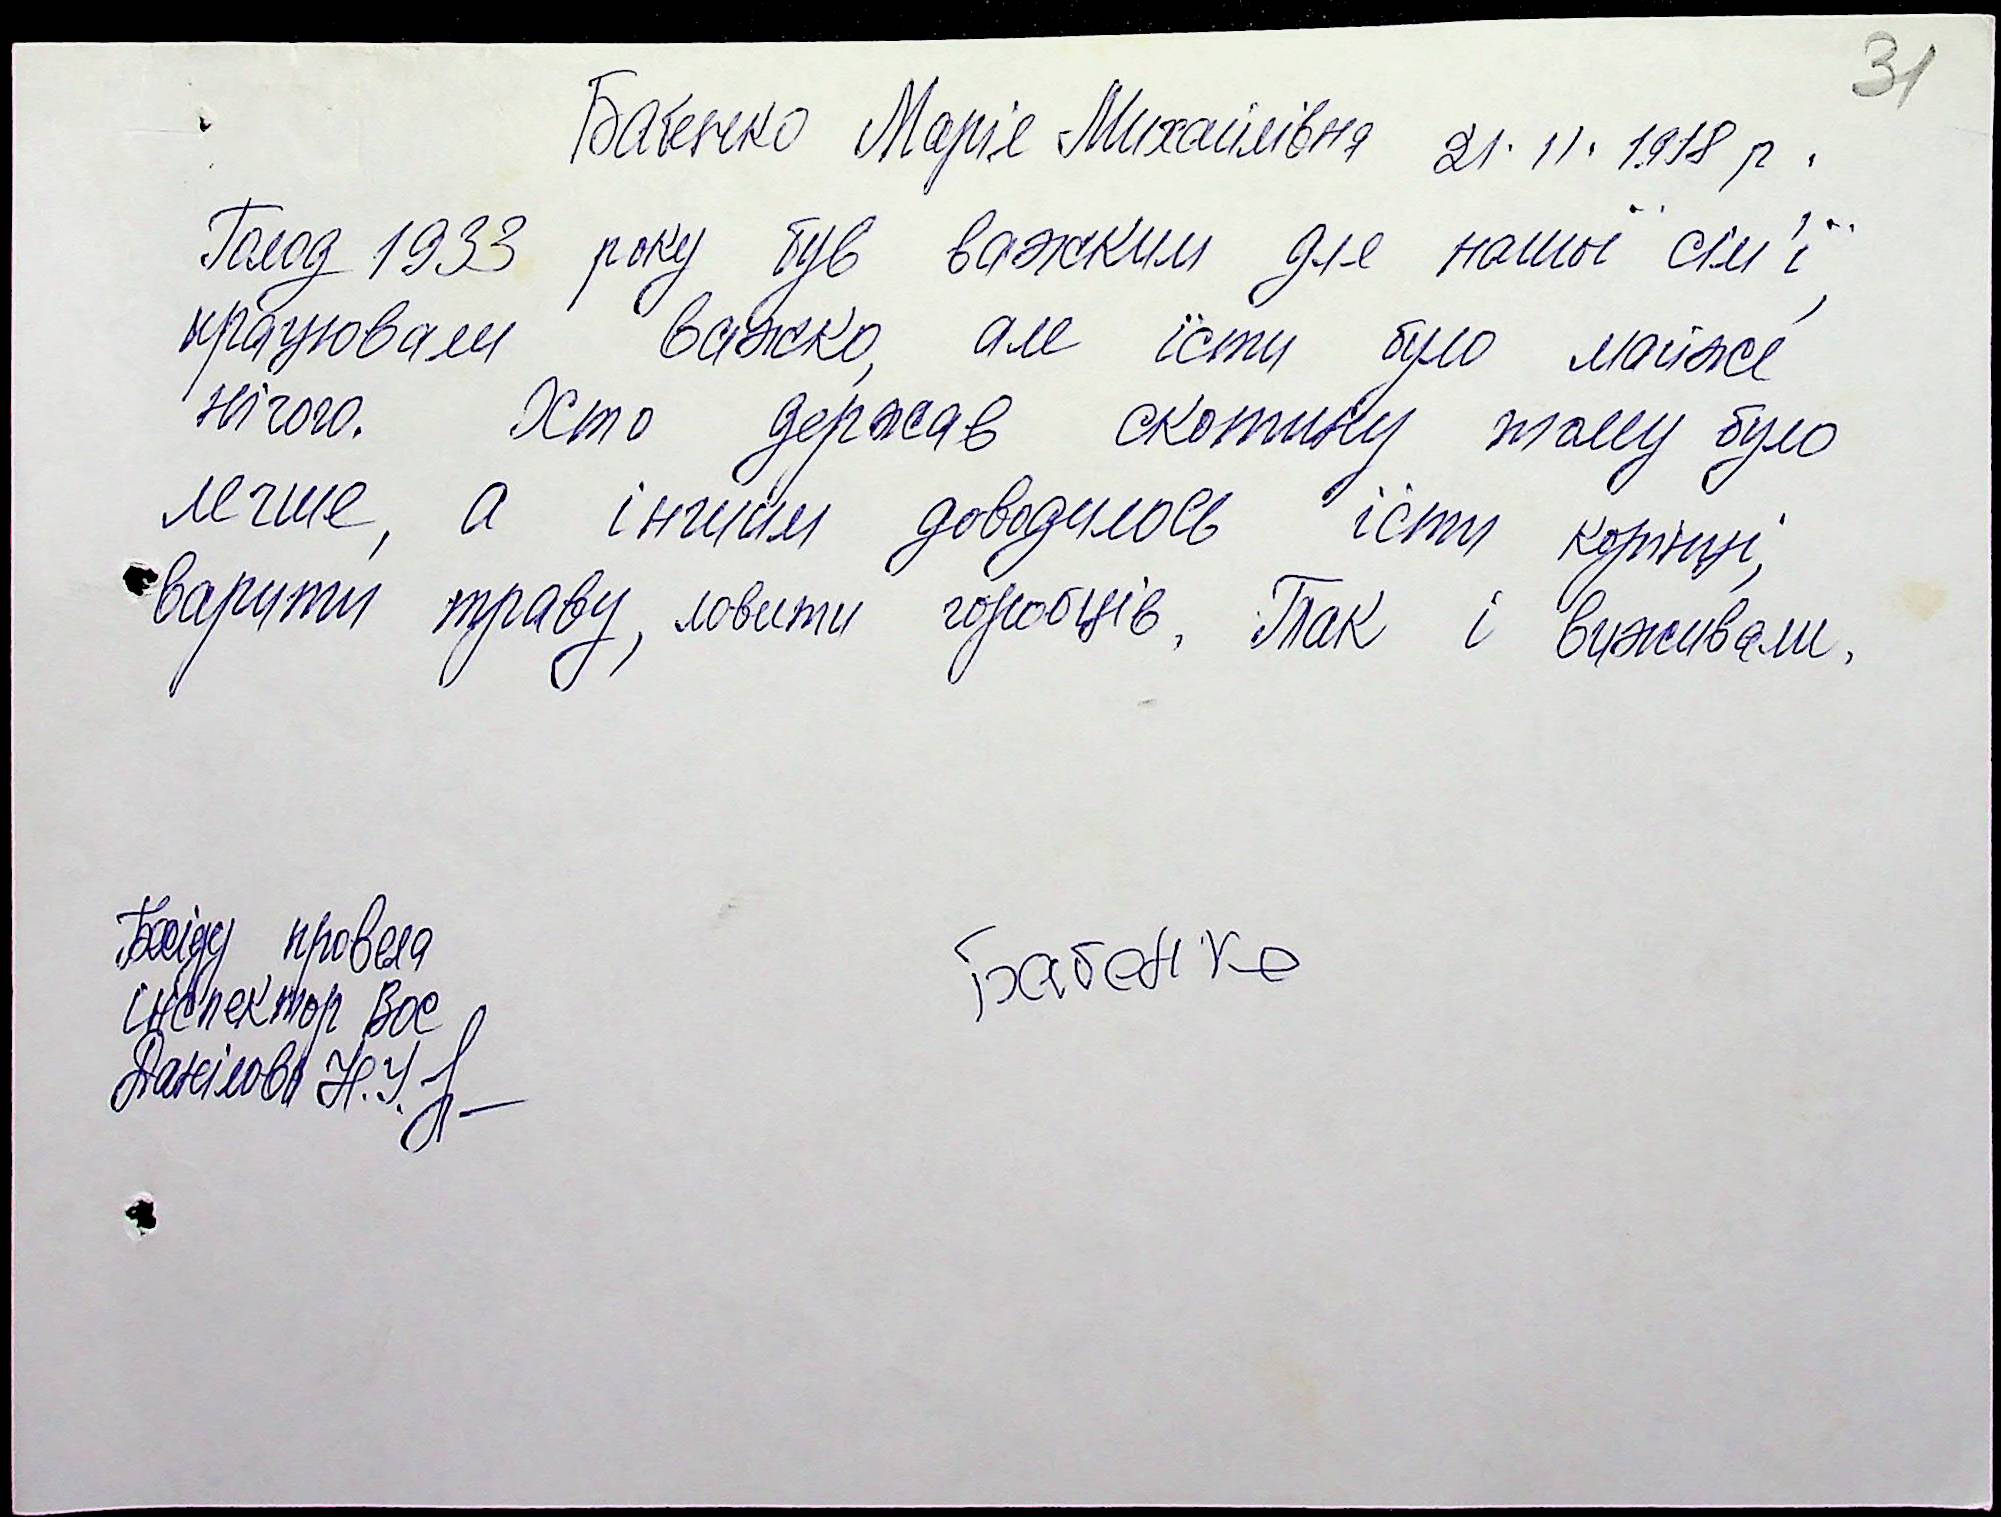 31
Бабенко Марія Михайлівна 21.11.1918 р.
Голод 1933 року був важким для нашої сім'ї,
працювали важко, але їсти було майже
нічого. Хто держав скотину тому було
легше, а іншим доводилось їсти корінці,
варити траву, ловити горобців. Так і виживали.
Бесіду провела
інспектор ВОС
Данілова Н.У.
Бабенко